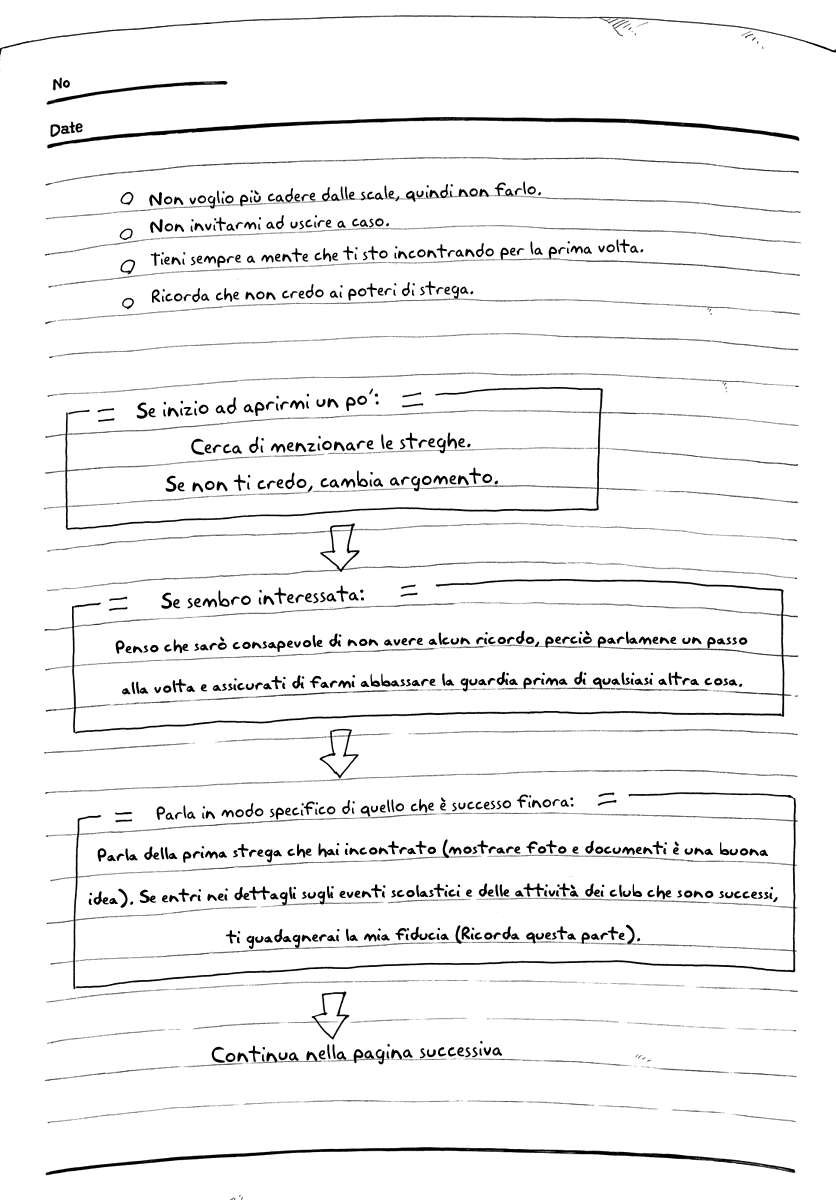 No
Date
Non voglio più cadere dalle scale, quindi non farlo.
Non invitarmi ad uscire a caso.
Tieni sempre a mente che ti sto incontrando per la prima volta.
Ricorda che non credo ai poteri di strega.
Se inizio ad aprirmi un po':
Cerca di menzionare le streghe.
Se non ti credo, cambia argomento.
Se sembro interessata:
Penso che sarò consapevole di non avere alcun ricordo, perciò parlamene un passo
alla volta e assicurati di farmi abbassare la guardia prima di qualsiasi altra cosa.
Parla in modo specifico di quello che è successo finora:
Parla della prima strega che hai incontrato (mostrare foto e documenti è una buona
idea). Se entri nei dettagli sugli eventi scolastici e delle attività dei club che sono successi,
ti guadagnerai la mia fiducia (Ricorda questa parte).
Continua nella pagina successiva